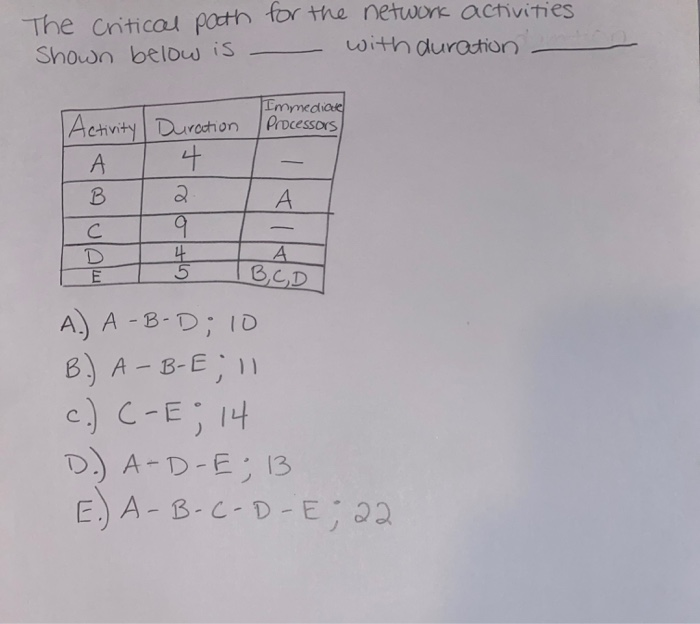 The critical path for the network activities
Shown below is ____ with duration ____
Activity Duration Immediate Processors
A 4 —
B 2 A
C 9 —
D 4 A
E 5 B,C,D
A.) A-B-D; 10
B.) A-B-E; 11
C.) C-E; 14
D.) A-D-E; 13
E.) A-B-C-D-E; 22